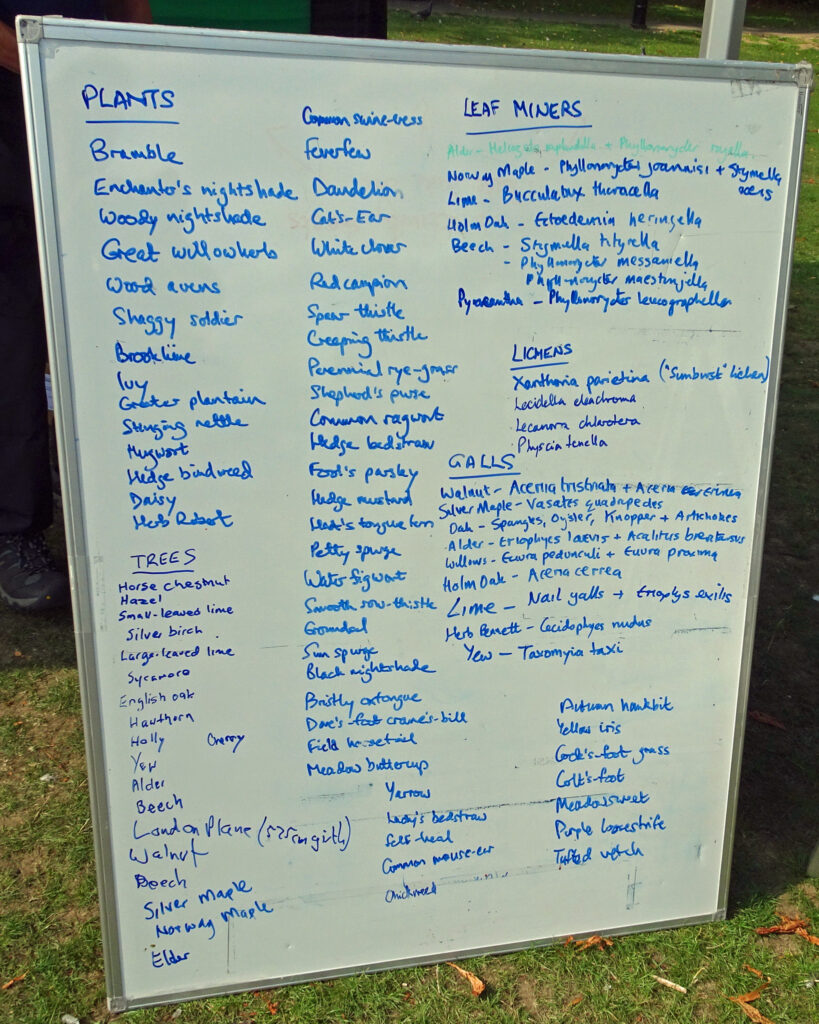 PLANTS
Bramble
Enchanter's nightshade
Woody nightshade
Great willowherb
Wood avens
Shaggy soldier
Brooklime
Ivy
Greater plantain
Stinging nettle
Mugwort
Hedge bindweed
Daisy
Herb Robert
TREES
Horse chestnut
Hazel
Small-leaved lime
Silver birch
Large-leaved lime
Sycamore
English oak
Hawthorn
Holly Cherry
Yew
Alder
Beech
London Plane (525cm girth)
Walnut
Beech
Silver Maple
Norway Maple
Elder
Common swine-cress
Feverfew
Dandelion
Cat's-Ear
White clover
Red campion
Spear thistle
Creeping thistle
Perennial rye-grass
Shepherd's purse
Common ragwort
Hedge bedstraw
Fool's parsley
Hedge mustard
Hart's tongue fern
Petty spurge
Water figwort
Smooth sow-thistle
Groundsel
Sun spurge
Black nightshade
Bristly oxtongue
Dove's-foot crane's-bill
Field horsetail
Meadow buttercup
Yarrow
Lady's bedstraw
Self-heal
Common mouse-ear
Chickweed
LEAF MINERS
Alder - + Phyllonorycter
Norway Maple - Phyllonorycter joannisi + Stigmella
aceris
Lime - Bucculatrix thoracella
Holm Oak - Ectoedemia heringella
Beech - Stigmella tityrella
- Phyllonorycter messaniella
Phyllonorycter maestingella
Pyracantha - Phyllonorycter leucographella
LICHENS
Xanthoria parietina ("Sunburst" lichen)
Lecidella elaeochroma
Lecanora chlarotera
Physcia tenella
GALLS
Walnut - Aceria tristriata + Aceria erinea
Silver Maple - Vasates quadripedes
Oak - Spangles, Oyster, Knopper + Artichokes
Alder - Eriophyes laevis + Acalitus brevitarsus
Willows - Euura pedunculi + Euura proxima
Holm Oak - Aceria cerrea
Lime - Nail galls → Eriophyes exilis
Herb Bennett - Cecidophyes nudus
Yew - Taxomyia taxi
Autumn hawkbit
Yellow iris
Cock's-foot grass
Colt's-foot
Meadowsweet
Purple loosestrife
Tufted vetch